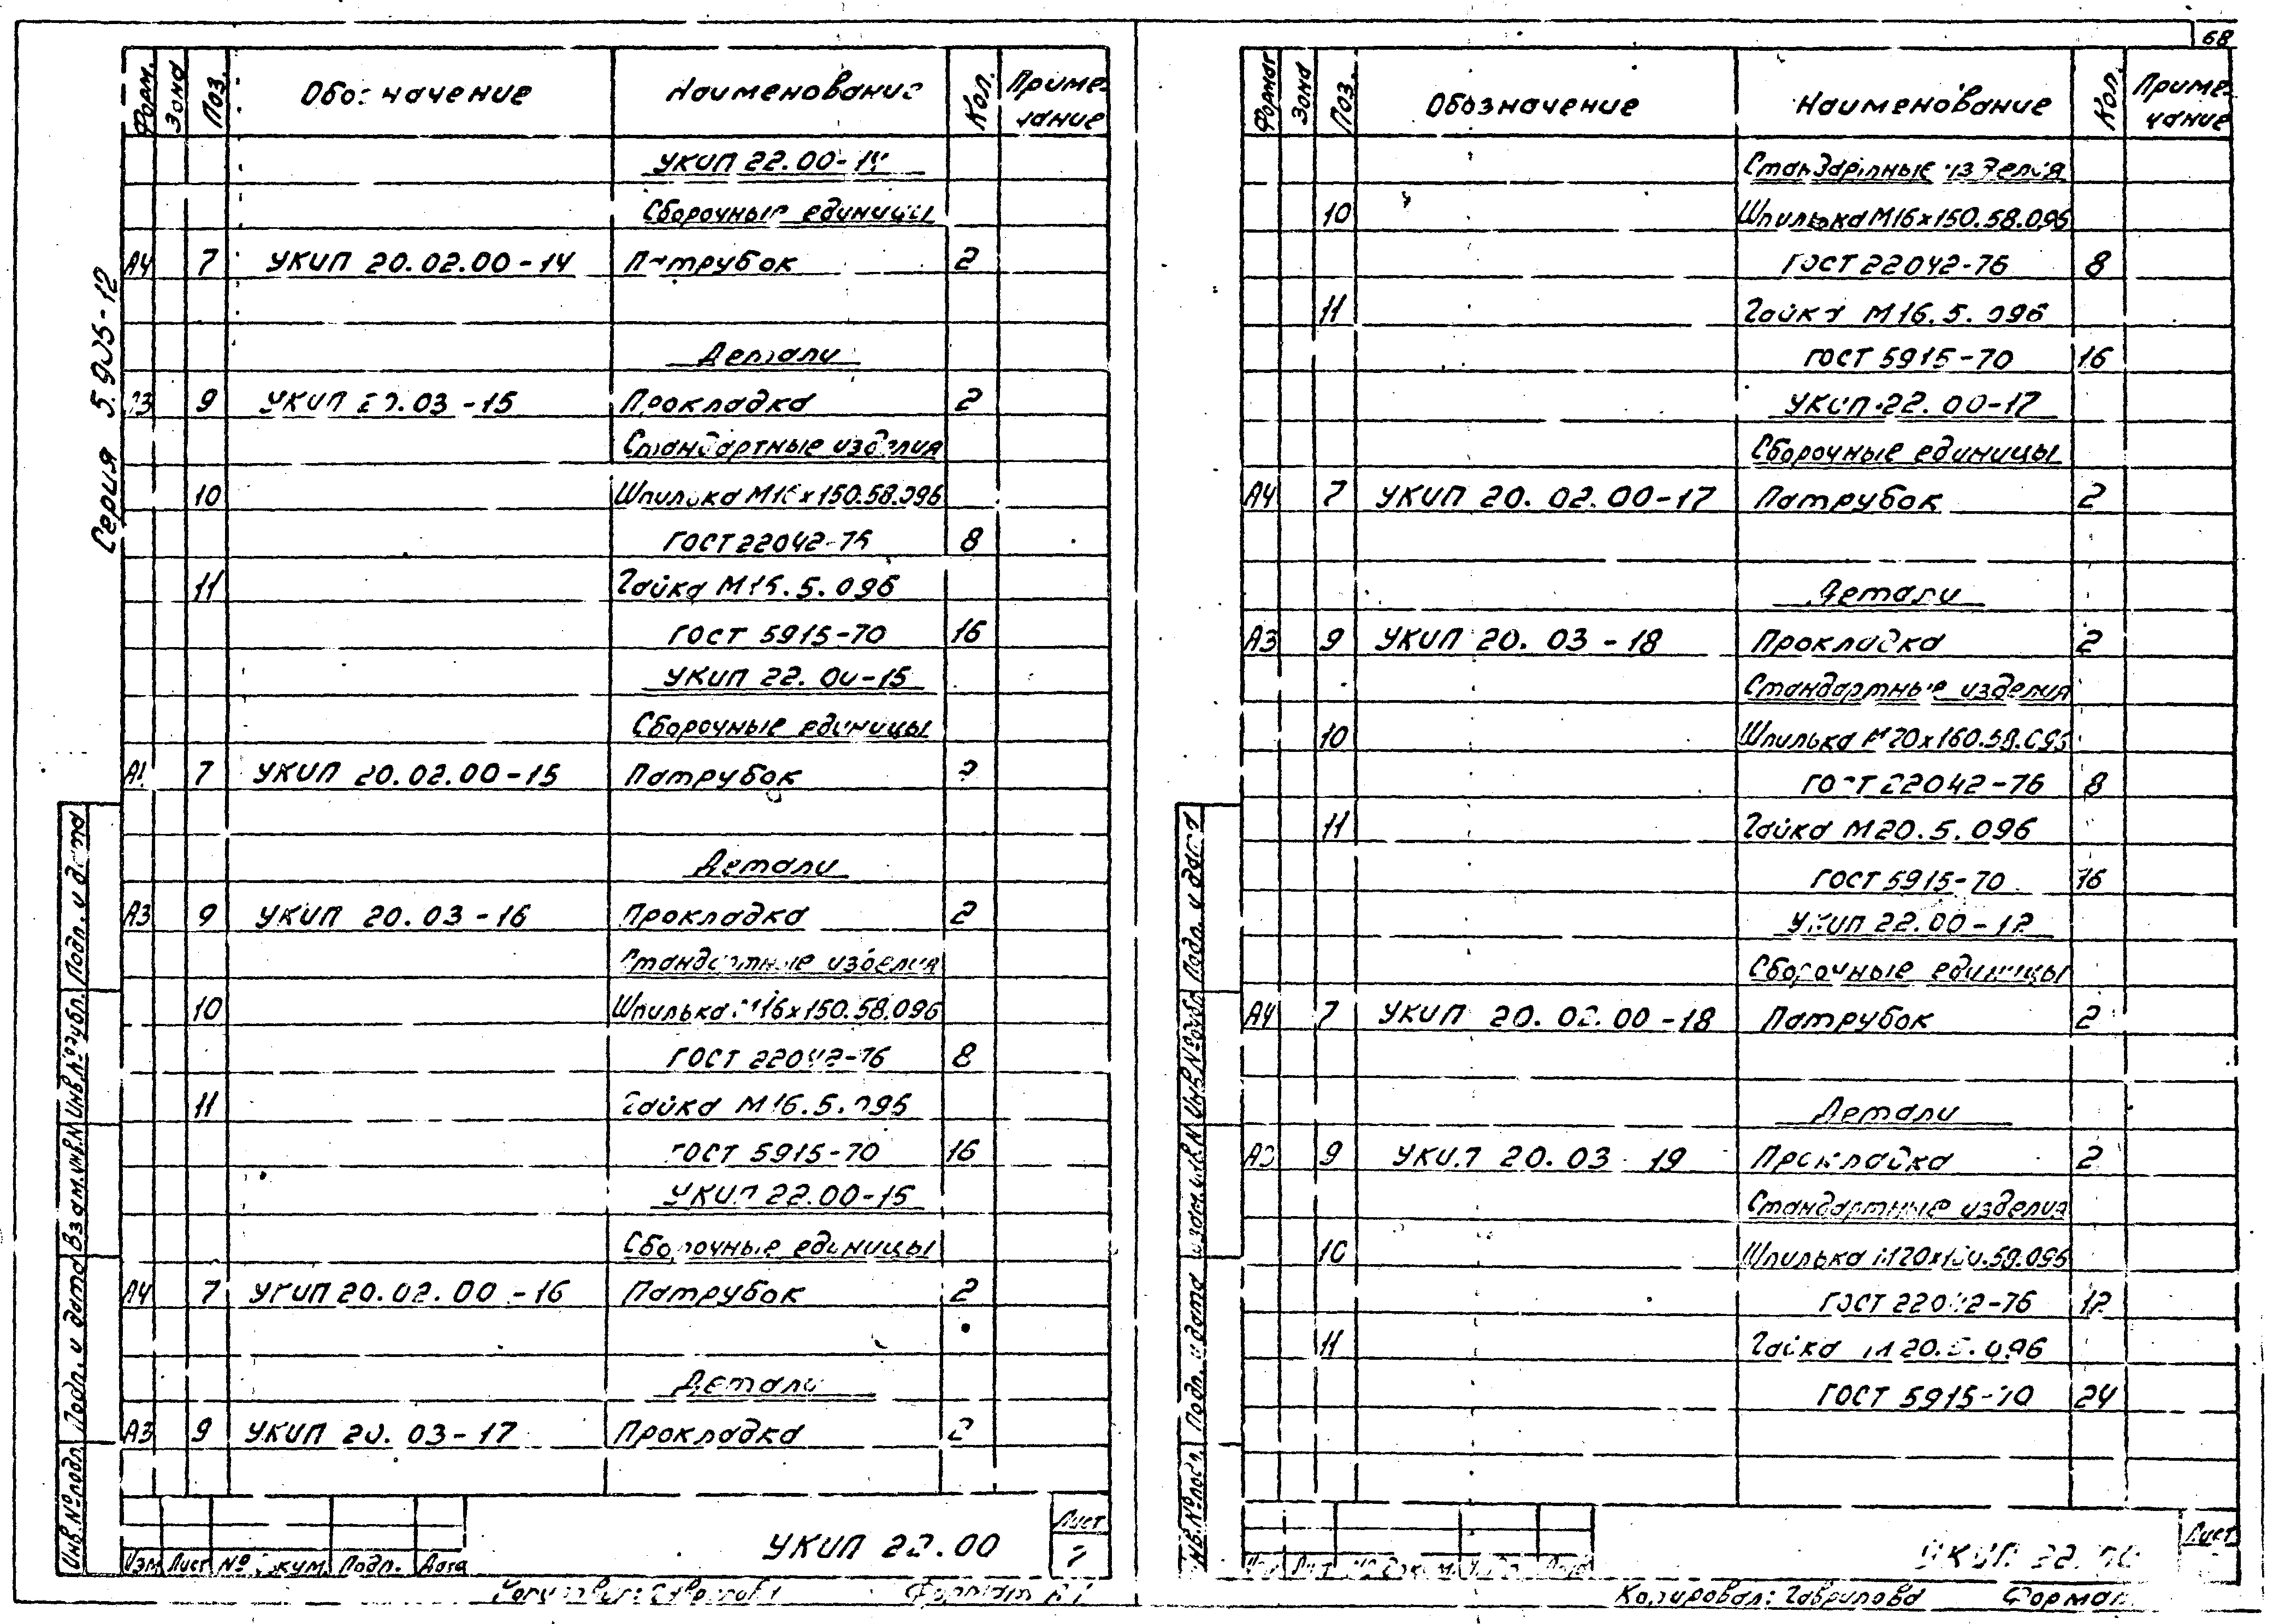 68
Серия 5.905-12
Форм. Зона Поз. Обозначение Наименование Кол. Приме-
чание
УКИП 22.00-14
Сборочные единицы
А4 7 УКИП 20.02.00-14 Патрубок 2
Детали
9 УКИП 20.03-15 Прокладка 2
Стандартные изделия
10 Шпилька М16х150.58.096
ГОСТ 22042-76 8
11 Гайка М16.5.096
ГОСТ 5915-70 16
УКИП 22.00-15
Сборочные единицы
7 УКИП 20.02.00-15 Патрубок
Детали
А3 9 УКИП 20.03-16 Прокладка 2
Стандартные изделия
10 Шпилька М16х150.58.096
ГОСТ 22042-76 8
11 Гайка М16.5.096
ГОСТ 5915-70 16
УКИП 22.00-15
Сборочные единицы
А4 7 УКИП 20.02.00-16 Патрубок 2
Детали
А3 9 УКИП 20.03-17 Прокладка 2
Инв.№подл. Подп. и дата Взам.инв.№ Инв.№дубл. Подп. и дата
Изм Лист № докум. Подп. Дата
УКИП 22.00
Лист
7
Формат
Формат Зона Поз. Обозначение Наименование Кол. Приме-
чание
Стандартные изделия
10 Шпилька М16х150.58.096
ГОСТ 22042-76 8
11 Гайка М16.5.096
ГОСТ 5915-70 16
УКИП 22.00-17
Сборочные единицы
А4 7 УКИП 20.02.00-17 Патрубок 2
Детали
А3 9 УКИП 20.03-18 Прокладка 2
Стандартные изделия
10 Шпилька М20х160.58.096
ГОСТ 22042-76 8
11 Гайка М20.5.096
ГОСТ 5915-70 16
УКИП 22.00-12
Сборочные единицы
А4 7 УКИП 20.02.00-18 Патрубок 2
Детали
9 УКИП 20.03-19 Прокладка 2
Стандартные изделия
10 Шпилька
ГОСТ 22042-76 12
11 Гайка М20.5.096
ГОСТ 5915-70 24
Инв.№подл. Подп. и дата Взам.инв.№ Инв.№дубл. Подп. и дата
УКИП 22.00
Лист
Копировал: Гаврилова Формат